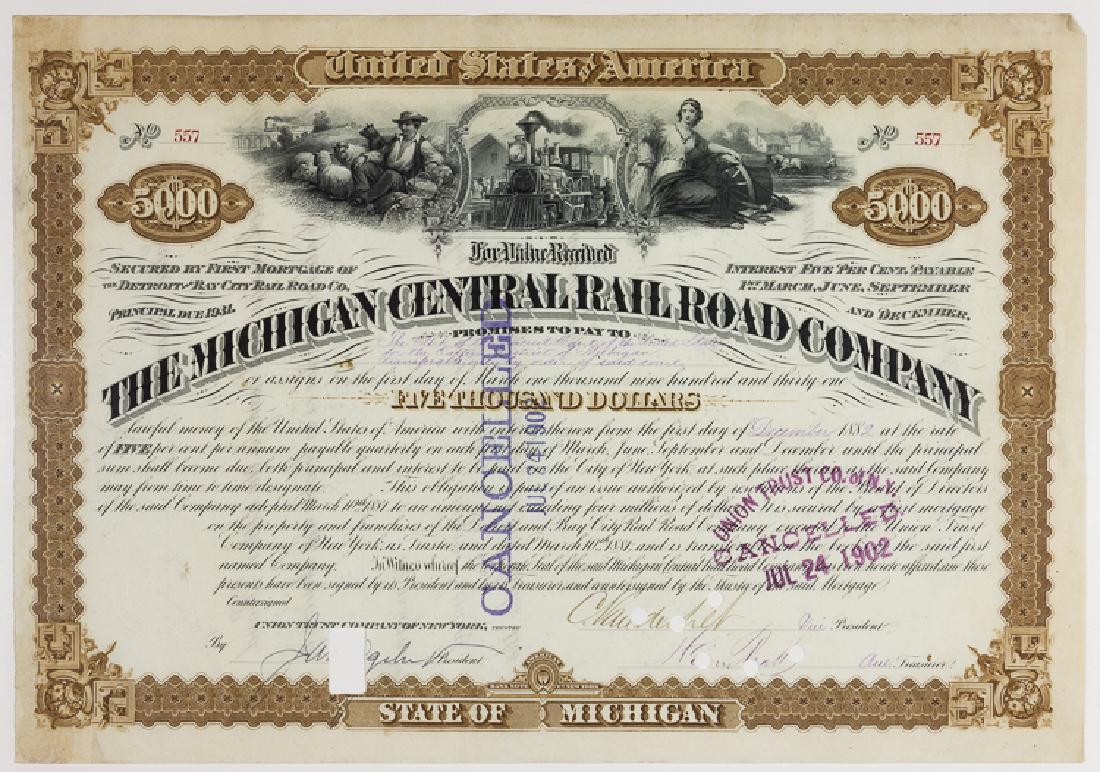 United States of America
No 557
No 557
$5000
$5000
For Value Received
SECURED BY FIRST MORTGAGE OF
THE DETROIT AND BAY CITY RAIL ROAD CO.
PRINCIPAL DUE 1931.
INTEREST FIVE PER CENT. PAYABLE
1ST MARCH, JUNE, SEPTEMBER
AND DECEMBER.
THE MICHIGAN CENTRAL RAIL ROAD COMPANY
PROMISES TO PAY TO
The Clerk of the Circuit Court of the United States
for the Eastern District of Michigan,
order of said court
or assigns on the first day of March one thousand nine hundred and thirty one
FIVE THOUSAND DOLLARS
lawful money of the United States of America with interest thereon from the first day of December 1882 at the rate
of FIVE per cent per annum payable quarterly on each first day of March, June, September and December until the principal
sum shall become due, both principal and interest to be paid in the City of New York, at such place as the said Company
may from time to time designate. This obligation is part of an issue authorized by resolutions of the Board of Directors
of the said Company adopted March 10th 1881 to an amount not exceeding four millions of dollars and is secured by first mortgage
on the property and franchises of the Detroit and Bay City Rail Road Company, executed to the Union Trust
Company of New York, as Trustee, and dated March 10th 1881, and is transferable on the books of the said first
named Company. In Witness whereof the Corporate Seal of the said Michigan Central Rail Road Company has been hereto affixed and these
presents have been signed by its President and its Treasurer and countersigned by the Trustee of the said Mortgage.
Countersigned
UNION TRUST COMPANY OF NEW YORK, TRUSTEE
By
President
C Vanderbilt Vice President
Treasurer
CANCELLED
JUL 24 1902
UNION TRUST CO. of N.Y.
CANCELLED
JUL 24 1902
STATE OF MICHIGAN